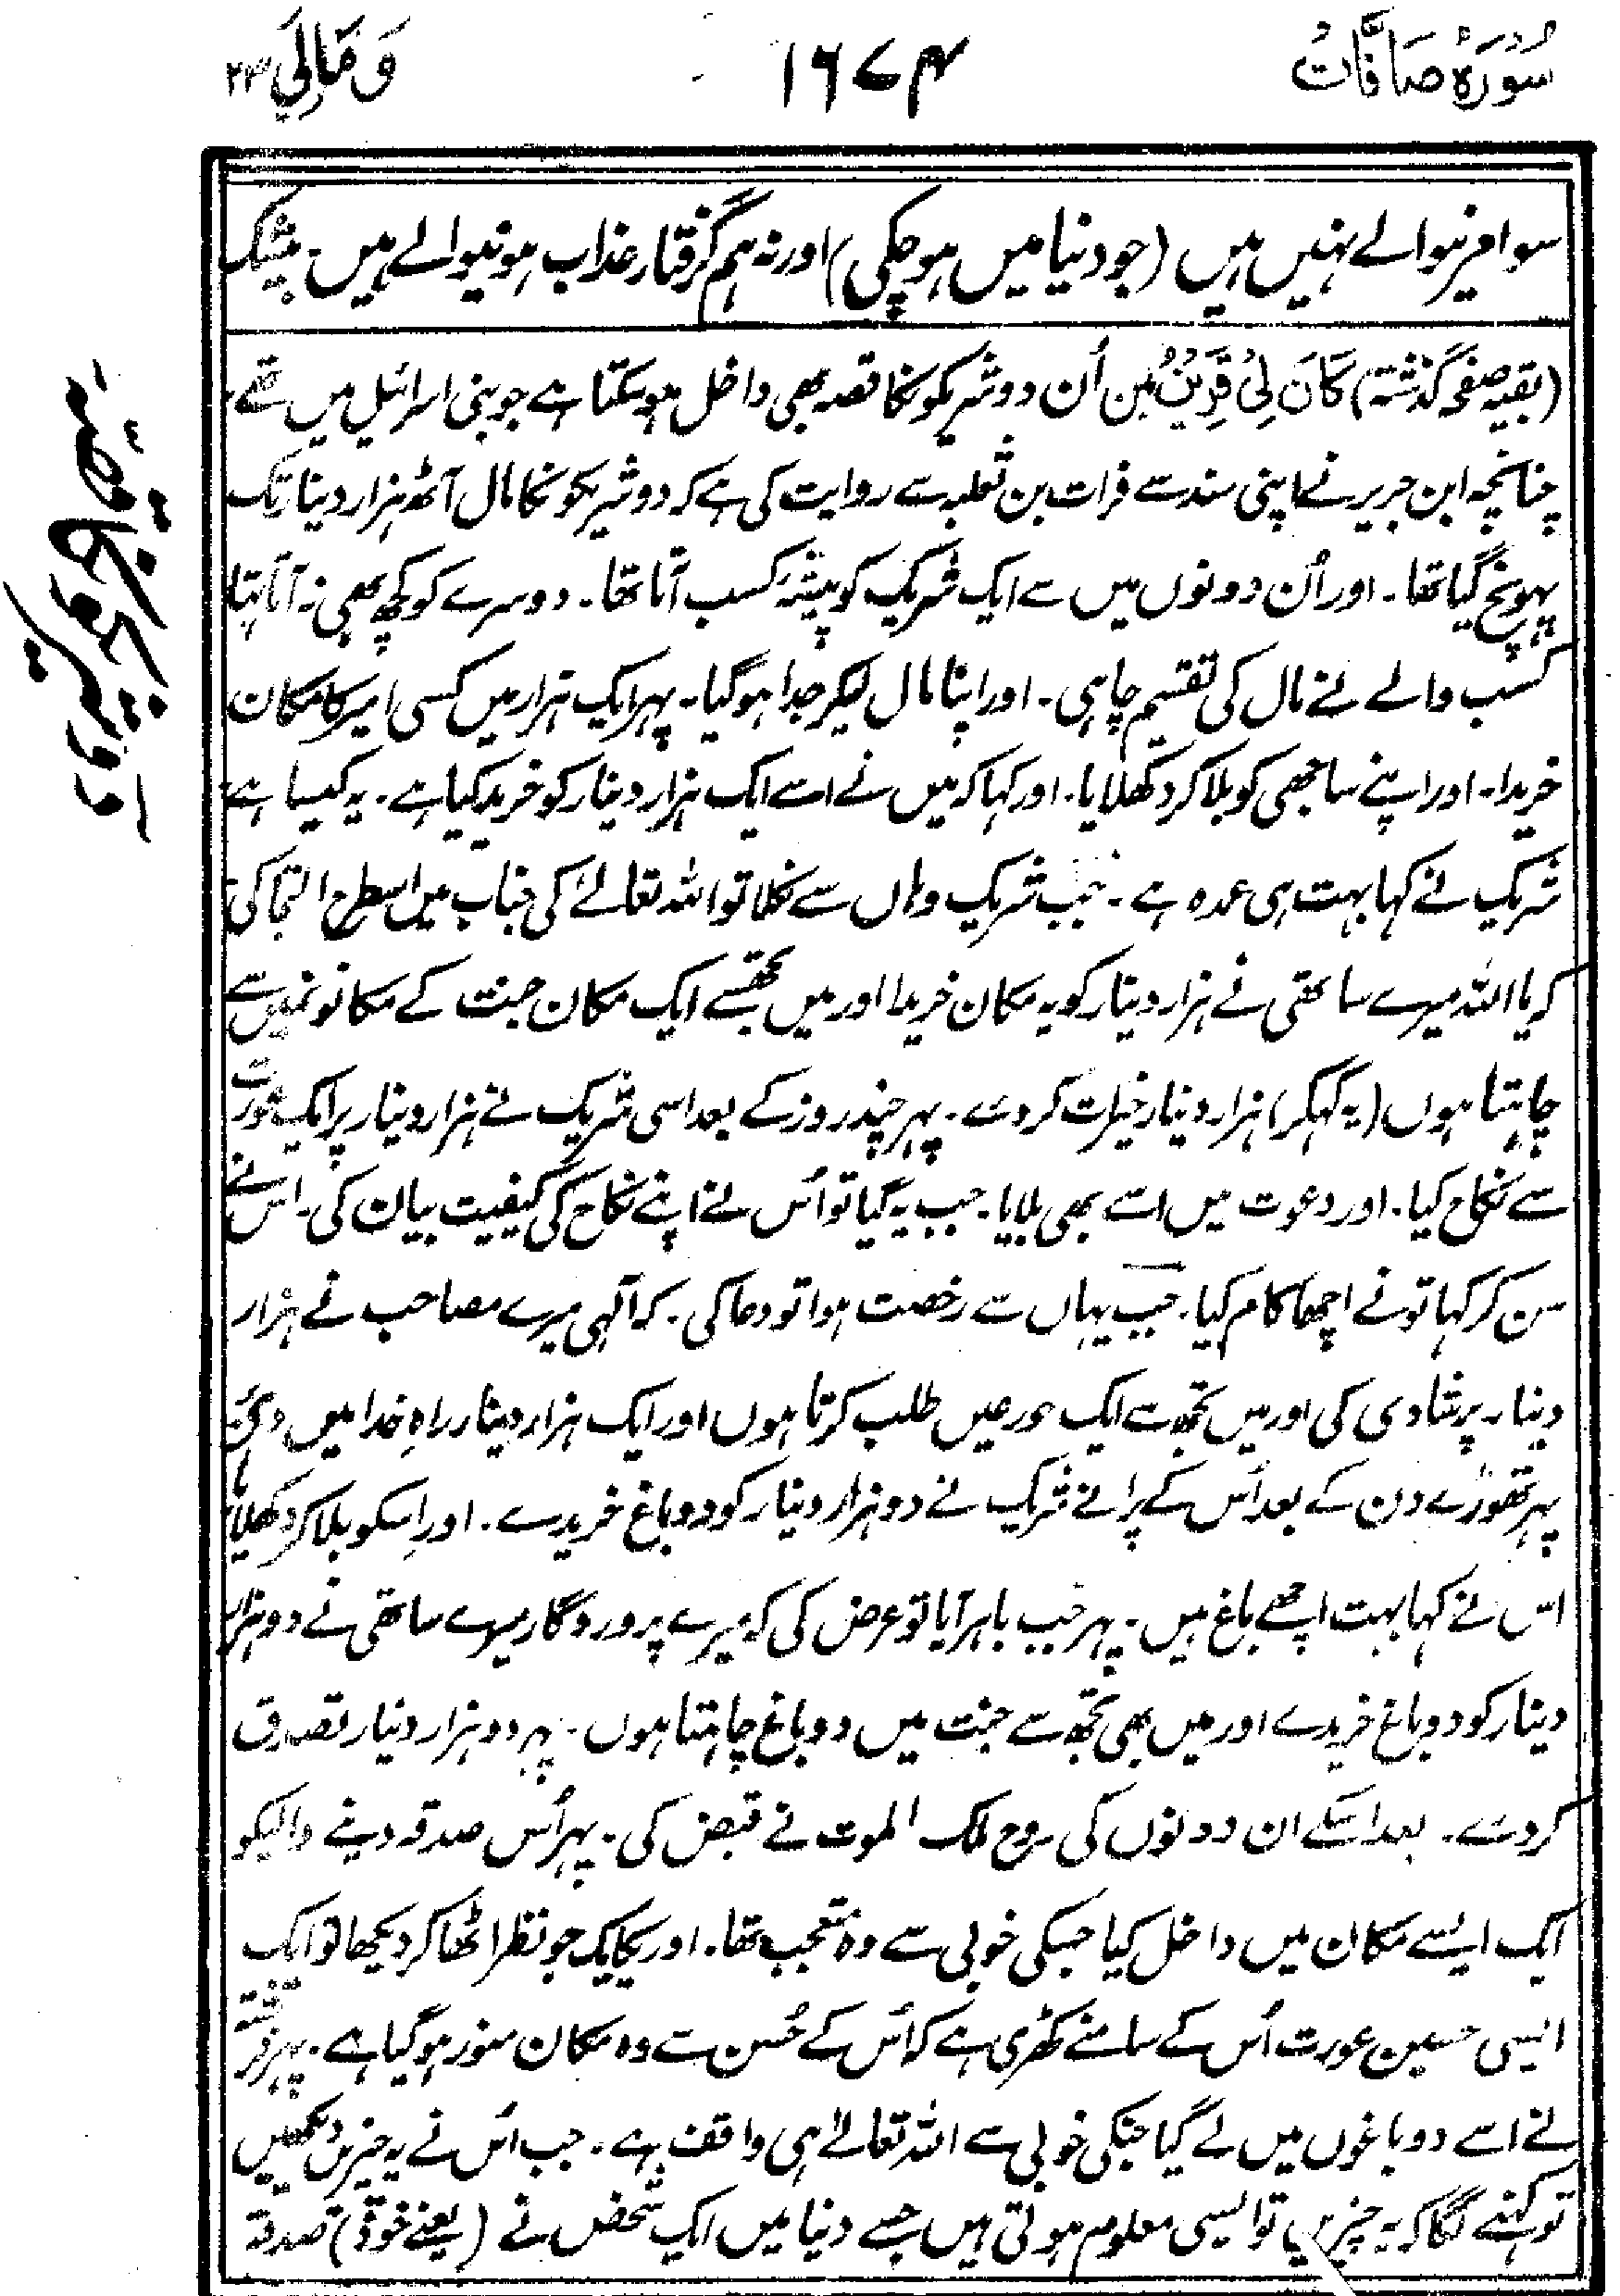 سورہ صافات
۱۶۷۴
وَمَالِيَ ۲۳
سوا مرنیوالے نہیں ہیں (جو دنیا میں ہو چکی) اور نہ ہم گرفتار عذاب ہونیوالے ہیں۔ بیشک
(بقیہ صفحہ گذشتہ) كَانَ لِيْ قَرِيْنٌ میں اُن دو شریکونکا قصہ بھی داخل ہوسکتا ہے جو بنی اسرائیل میں تھے۔
چنانچہ ابن جریر نے اپنی سند سے فرات بن ثعلبہ سے روایت کی ہے کہ دو شریکونکا مال آٹھ ہزار دینار تک
پہونچ گیا تھا۔ اور اُن دونوں میں سے ایک شریک کو پیشۂ کسب آتا تھا۔ دوسرے کو کچھ بھی نہ آتا تہا
کسب والے نے مال کی تقسیم چاہی۔ اور اپنا مال لیکر جدا ہوگیا۔ پہر ایک ہزار میں کسی امیر کا مکان
خریدا۔ اور اپنے ساجھی کو بلا کر دکھلایا۔ اور کہا کہ میں نے اسے ایک ہزار دینار کو خرید کیا ہے۔ یہ کیسا ہے
شریک نے کہا بہت ہی عمدہ ہے۔ جب شریک وہاں سے نکلا تو اللہ تعالےٰ کی جناب میں اسطرح التجا کی
کہ یا اللہ میرے ساتھی نے ہزار دینار کو یہ مکان خریدا اور میں تجھسے ایک مکان جنت کے مکانونمیں سے
چاہتا ہوں (یہ کہکر) ہزار دینار خیرات کر دے۔ پہر چند روز کے بعد اسی شریک نے ہزار دینار پر ایک عورت
سے نکاح کیا۔ اور دعوت میں اسے بھی بلایا۔ جب یہ گیا تو اُس نے اپنے نکاح کی کیفیت بیان کی۔ اس نے
سن کر کہا تو نے اچھا کام کیا۔ جب یہاں سے رخصت ہوا تو دعا کی۔ کہ آلہی میرے مصاحب نے ہزار
دینار پر شادی کی اور میں تجھ سے ایک حور عین طلب کرتا ہوں اور ایک ہزار دینار راہِ خدا میں دیئے
پہر تھوڑے دن کے بعد اُس کے پرانے شریک نے دو ہزار دینار کو دو باغ خریدے۔ اور اِسکو بلا کر دکھلایا
اس نے کہا بہت اچھے باغ ہیں۔ پہر جب باہر آیا تو عرض کی کہ میرے پروردگار میرے ساتھی نے دو ہزار
دینار کو دو باغ خریدے اور میں بھی تجھ سے جنت میں دو باغ چاہتا ہوں۔ پہر دو ہزار دینار تصدق
کر دے۔ بعد اسکے ان دونوں کی روح ملک الموت نے قبض کی۔ پہر اُس صدقہ دینے والیکو
ایک ایسے مکان میں داخل کیا جسکی خوبی سے وہ متعجب تھا۔ اور یکایک جو نظر اٹھا کر دیکھا تو ایک
ایسی حسین عورت اُس کے سامنے کھڑی ہے کہ اُس کے حُسن سے وہ مکان منور ہوگیا ہے۔ پہر فرشتہ
نے اسے دو باغوں میں لے گیا جنکی خوبی سے اللہ تعالےٰ ہی واقف ہے۔ جب اُس نے یہ چیزیں دیکھیں
تو کہنے لگا کہ یہ چیزیں تو ایسی معلوم ہوتی ہیں جسے دنیا میں ایک شخص نے (یعنے خود) صدقہ